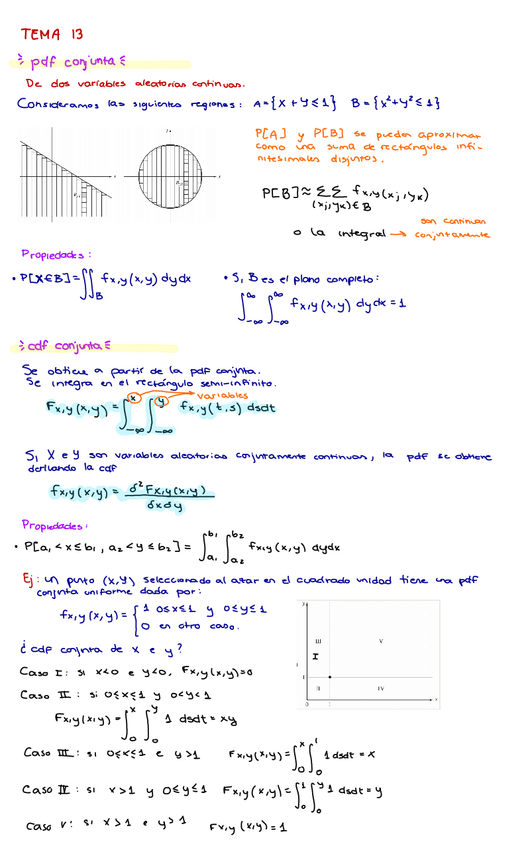 TEMA 13
pdf conjunta
De dos variables aleatorias continuas.
Consideramos las siguientes regiones: A={X + y ≤ 1} B={x²+y² ≤ 1}
P[A] y P[B] se pueden aproximar
como una suma de rectángulos infi-
nitesimales disjuntos.
P[B] ≈ Σ Σ fx,y(xj, yk)
(xj, yk) ∈ B
o la integral → son continuas
conjuntamente
Propiedades:
• P[X∈B] = ∬B fx,y(x,y) dydx
• Si B es el plano completo:
∫-∞^∞ ∫-∞^∞ fx,y(x,y) dydx = 1
cdf conjunta
Se obtiene a partir de la pdf conjnta.
Se integra en el rectángulo semi-infinito.
variables
Fx,y(x,y) = ∫-∞^x ∫-∞^y fx,y(t,s) dsdt
Si X e Y son variables aleatorias conjuntamente continuas, la pdf se obtiene
derivando la cdf
fx,y(x,y) = δ²Fx,y(x,y) / δxδy
Propiedades:
• P[a₁ < x ≤ b₁, a₂ < y ≤ b₂] = ∫a₁^b₁ ∫a₂^b₂ fx,y(x,y) dydx
Ej: un punto (x,y) seleccionado al azar en el cuadrado unidad tiene una pdf
conjunta uniforme dada por:
fx,y(x,y) = { 1 0≤x≤1 y 0≤y≤1
0 en otro caso.
¿cdf conjnta de x e y?
Caso I: si x<0 e y<0, Fx,y(x,y)=0
Caso II: si 0≤x≤1 y 0<y<1
Fx,y(x,y) = ∫0^x ∫0^y 1 dsdt = xy
III
V
I
II
IV
Caso III: si 0≤x≤1 e y>1 Fx,y(x,y) = ∫0^x ∫0^1 1 dsdt = x
Caso IV: si x>1 y 0≤y≤1 Fx,y(x,y) = ∫0^1 ∫0^y 1 dsdt = y
Caso V: si x>1 e y>1 Fx,y(x,y)=1